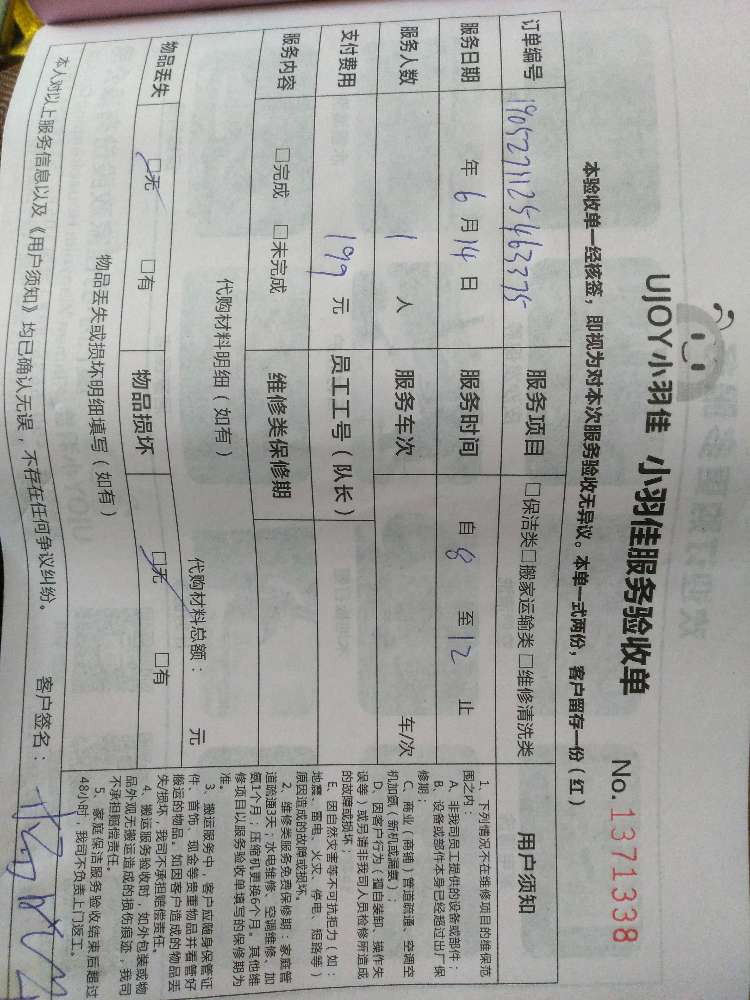 UJOY小羽佳 小羽佳服务验收单 No.1371338
本验收单一经核签，即视为对本次服务验收无异议。本单一式两份，客户留存一份（红）
订单编号 1905271125463375 服务项目 □保洁类□搬家运输类□维修清洗类
服务日期 年 6 月 14 日 服务时间 自 8 至 12 止
服务人数 1 人 服务车次 车/次
支付费用 199 元 员工工号（队长）
服务内容 □完成 □未完成 维修类保修期
代购材料明细（如有） 代购材料总额： 元
物品丢失 □无 □有 物品损坏 □无 □有
物品丢失或损坏明细填写（如有）
本人对以上服务信息以及《用户须知》均已确认无误，不存在任何争议纠纷。 客户签名：
用户须知
1、下列情况不在维修项目的维保范
围之内：
A、非我司员工提供的设备或部件；
B、设备或部件本身已经超过出厂保
修期；
C、商业（商铺）管道疏通、空调空
机加氨（新机或漏氨）；
D、因客户行为（擅自装卸、操作失
误等）或另请非我司人员检修所造成
的故障或损坏；
E、因自然灾害等不可抗拒力（如：
地震、雷电、火灾、停电、短路等）
原因造成的故障或损坏。
2、维修类服务免费保修期：家庭管
道疏通3天；水电维修、空调维修、加
氨1个月；压缩机更换6个月。其他维
修项目以服务验收单填写的保修期为
准。
3、搬运服务中，客户应随身保管证
件、首饰、现金等贵重物品并看管好
搬运的物品。如因客户造成的物品丢
失/损坏，我司不承担赔偿责任。
4、搬运服务验收时，如外包装或物
品外观无搬运造成的损伤痕迹，我司
不承担赔偿责任。
5、家庭保洁服务验收结束后超过
48小时，我司不负责上门返工。